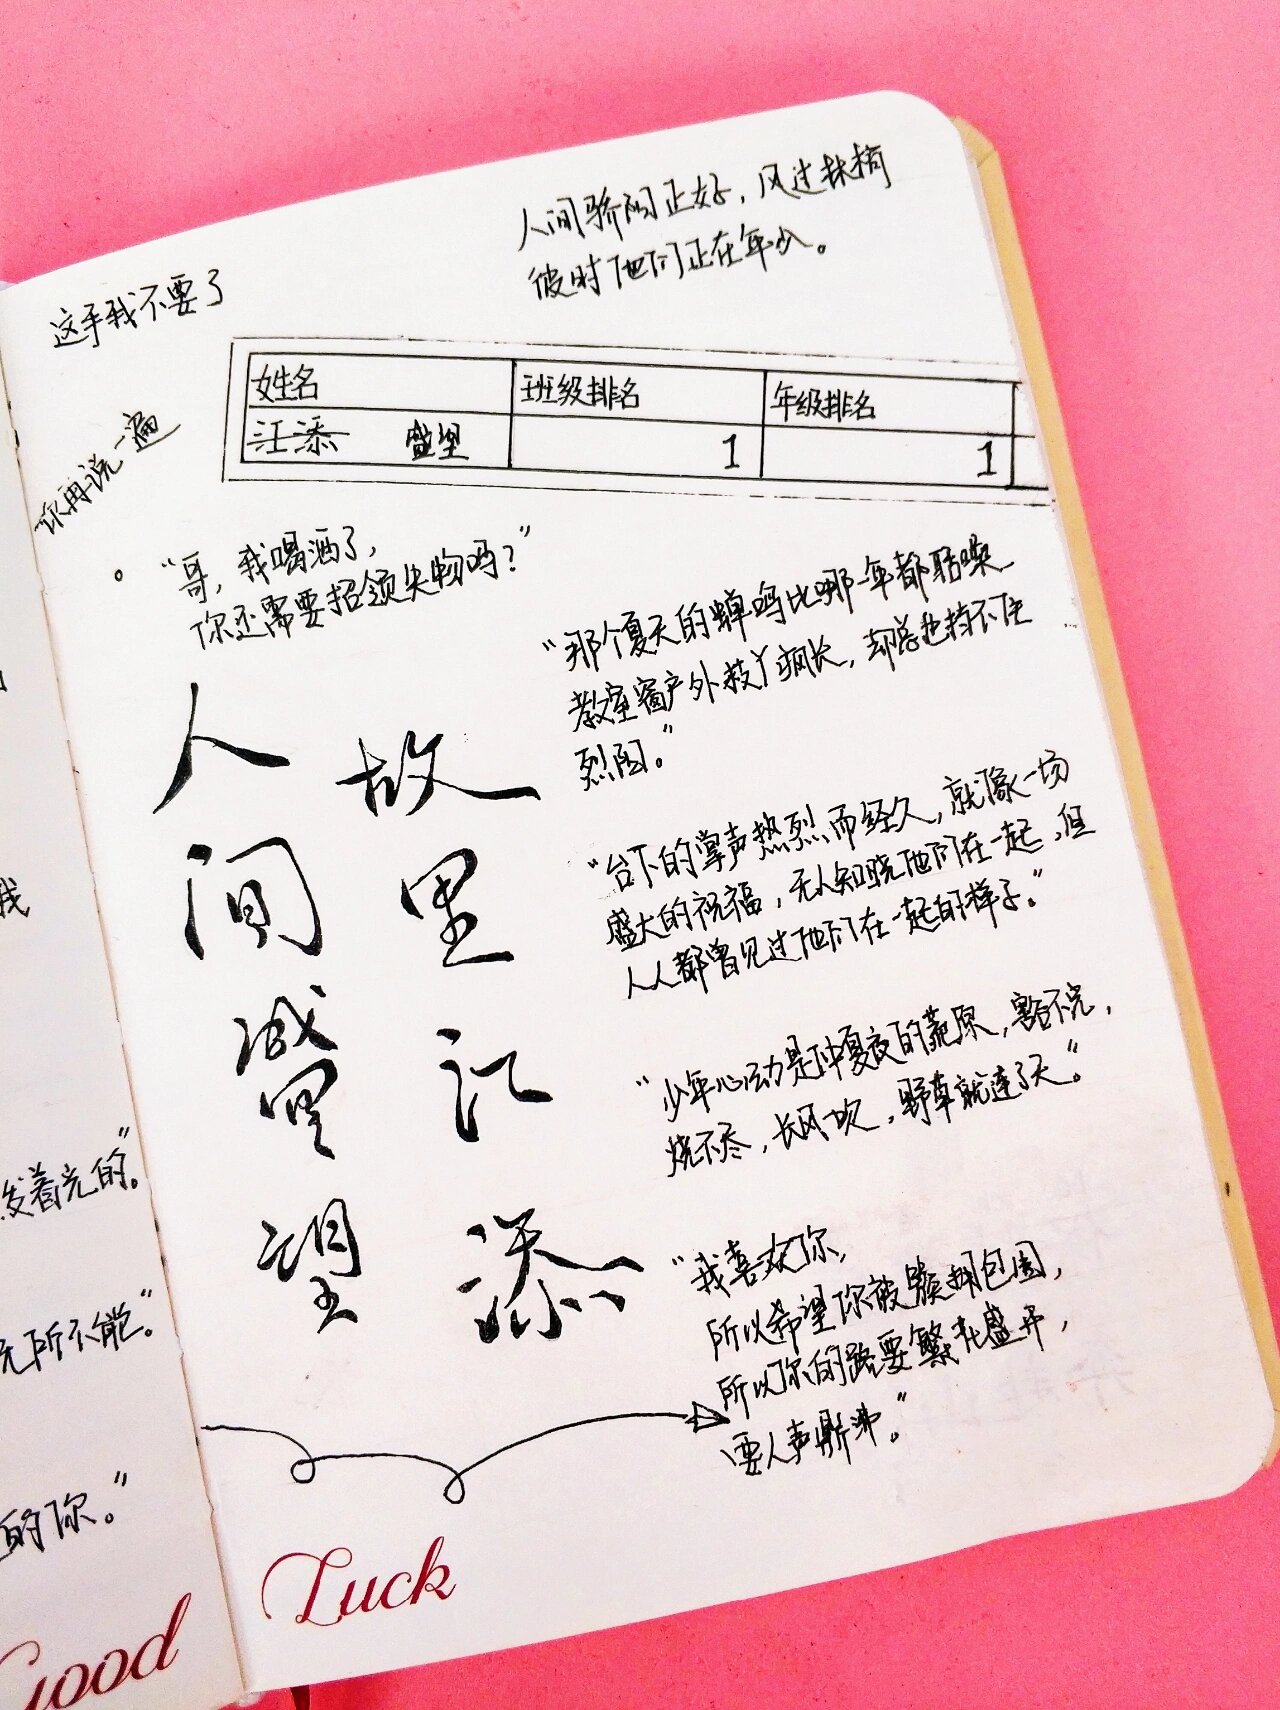 人间骄阳正好，风过林梢
彼时他们正在年少。
这手我不要了
姓名 班级排名 年级排名
江添 盛望 1 1
你再说一遍
“哥，我喝酒了，
你还需要招领失物吗？”
“那个夏天的蝉鸣比哪一年都聒噪
教室窗户外枝丫疯长，却总也挡不住
烈阳。”
人间盛望
故里江添
“台下的掌声热烈而经久，就像一场
盛大的祝福，无人知晓他们在一起，但
人人都曾见过他们在一起的样子。”
“少年心动是仲夏夜的荒原，割不完，
烧不尽，长风一吹，野草就连了天。”
“我喜欢你，
所以希望你被簇拥包围，
所以你的路要繁花盛开，
要人声鼎沸。”
我
发着光的。”
无所不能。”
的你。”
Good Luck